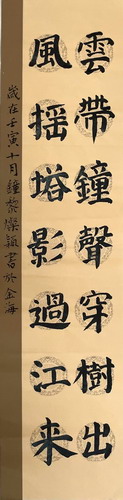 雲帶鐘聲穿樹出
風摇塔影過江来
歲在壬寅十月鐘黎燦穎書於金海